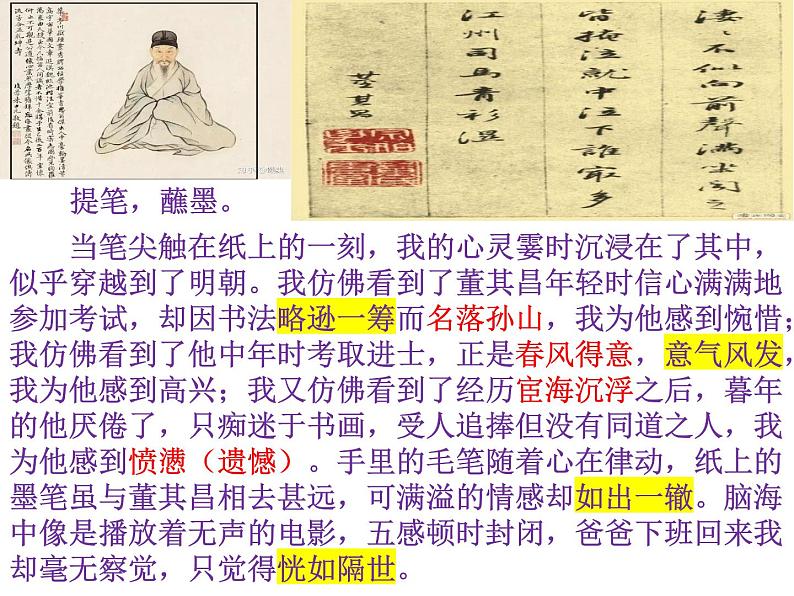 凄〻不似向前聲滿坐聞之
皆掩泣就中泣下誰最多
江州司馬青衫濕
董其昌
提笔，蘸墨。
当笔尖触在纸上的一刻，我的心灵霎时沉浸在了其中，
似乎穿越到了明朝。我仿佛看到了董其昌年轻时信心满满地
参加考试，却因书法略逊一筹而名落孙山，我为他感到惋惜；
我仿佛看到了他中年时考取进士，正是春风得意，意气风发，
我为他感到高兴；我又仿佛看到了经历宦海沉浮之后，暮年
的他厌倦了，只痴迷于书画，受人追捧但没有同道之人，我
为他感到愤懑（遗憾）。手里的毛笔随着心在律动，纸上的
墨笔虽与董其昌相去甚远，可满溢的情感却如出一辙。脑海
中像是播放着无声的电影，五感顿时封闭，爸爸下班回来我
却毫无察觉，只觉得恍如隔世。